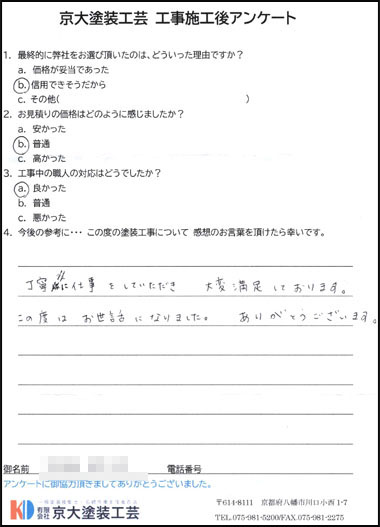 京大塗装工芸 工事施工後アンケート
1. 最終的に弊社をお選び頂いたのは、どういった理由ですか?
a. 価格が妥当であった
b. 信用できそうだから
c. その他( )
2. お見積りの価格はどのように感じましたか?
a. 安かった
b. 普通
c. 高かった
3. 工事中の職人の対応はどうでしたか?
a. 良かった
b. 普通
c. 悪かった
4. 今後の参考に・・・ この度の塗装工事について 感想のお言葉を頂けたら幸いです。
丁寧に仕事をしていただき 大変満足しております。
この度はお世話になりました。 ありがとうございます。
御名前 電話番号
アンケートに御協力頂きましてありがとうございました。
KD 有限会社 京大塗装工芸
〒614-8111 京都府八幡市川口小西1-7
TEL.075-981-5200/FAX.075-981-2275